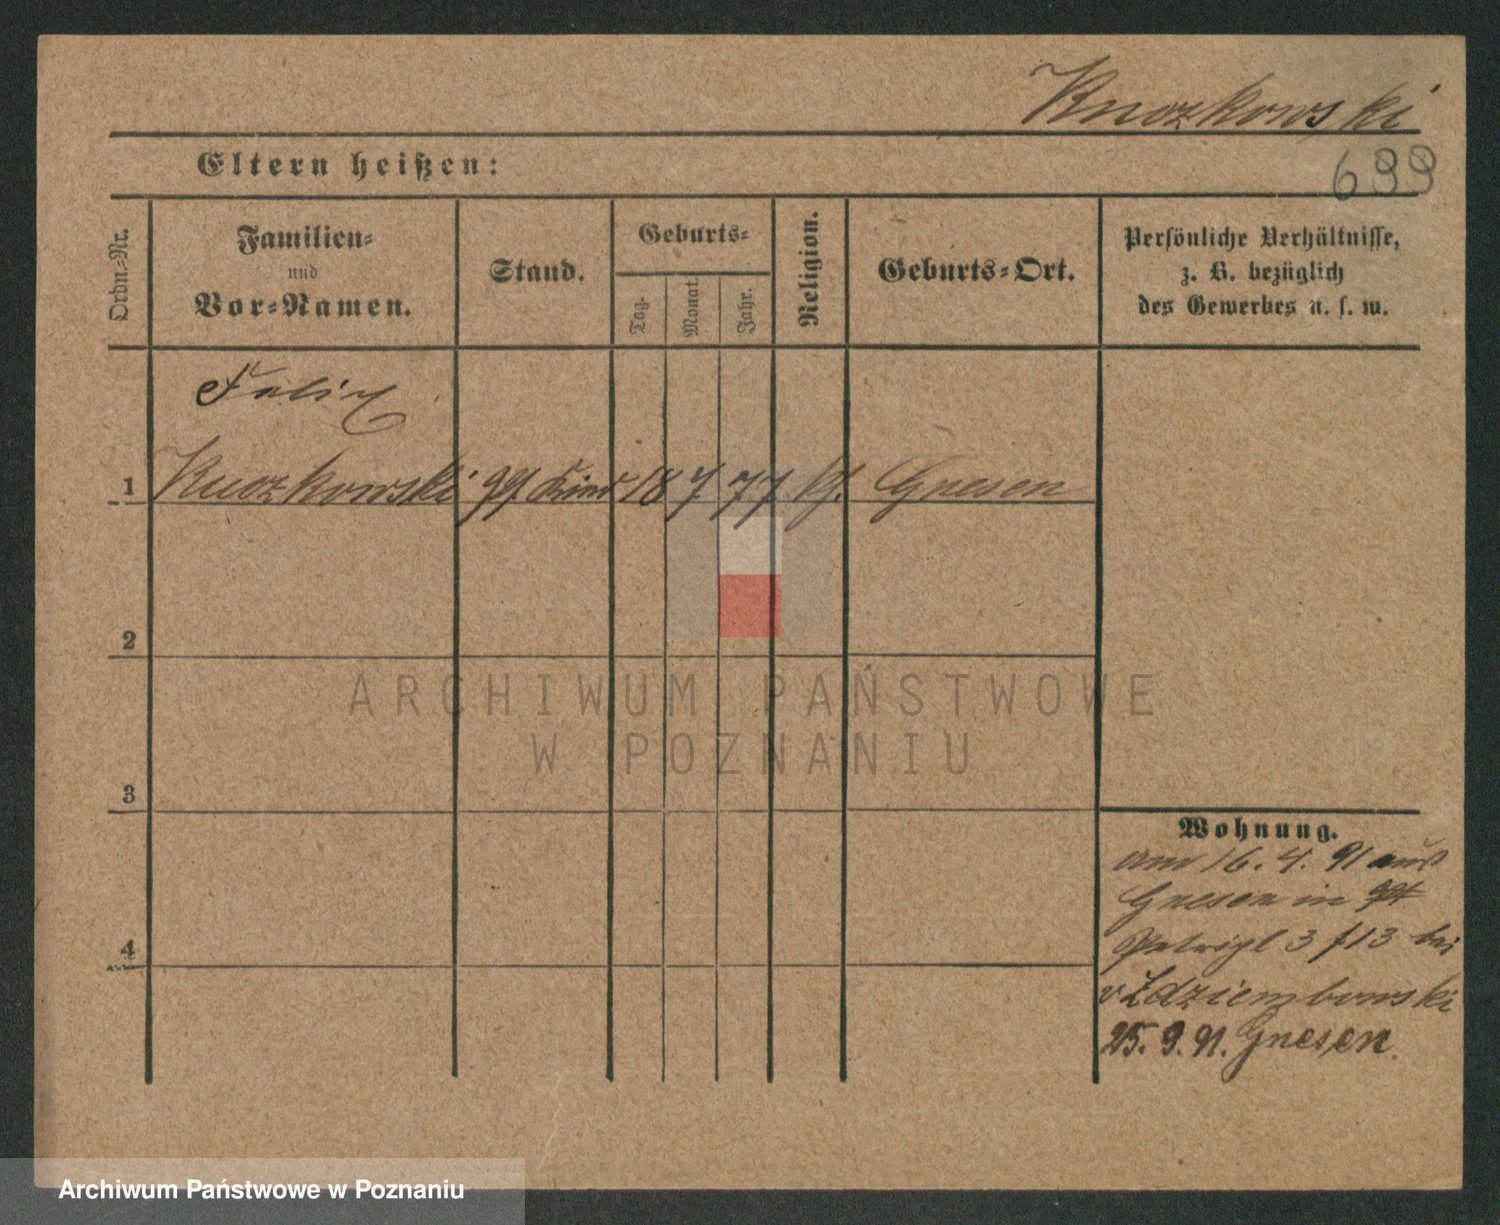 Knozkowski
Eltern heißen:
699
Ordn.-Nr.
Familien-
und
Vor-Namen.
Stand.
Geburts-
Tag.
Monat.
Jahr.
Religion.
Geburts-Ort.
Persönliche Verhältnisse,
z. B. bezüglich
des Gewerbes u. s. w.
Felix
1 Knozkowski Kind 18 7 77 Gnesen
2
3
4
Wohnung.
am 16. 4. 91 aus
Gnesen in
3 f 13 bei
v Zdziembowski
25. 9. 91. Gnesen.
ARCHIWUM PAŃSTWOWE
W POZNANIU
Archiwum Państwowe w Poznaniu